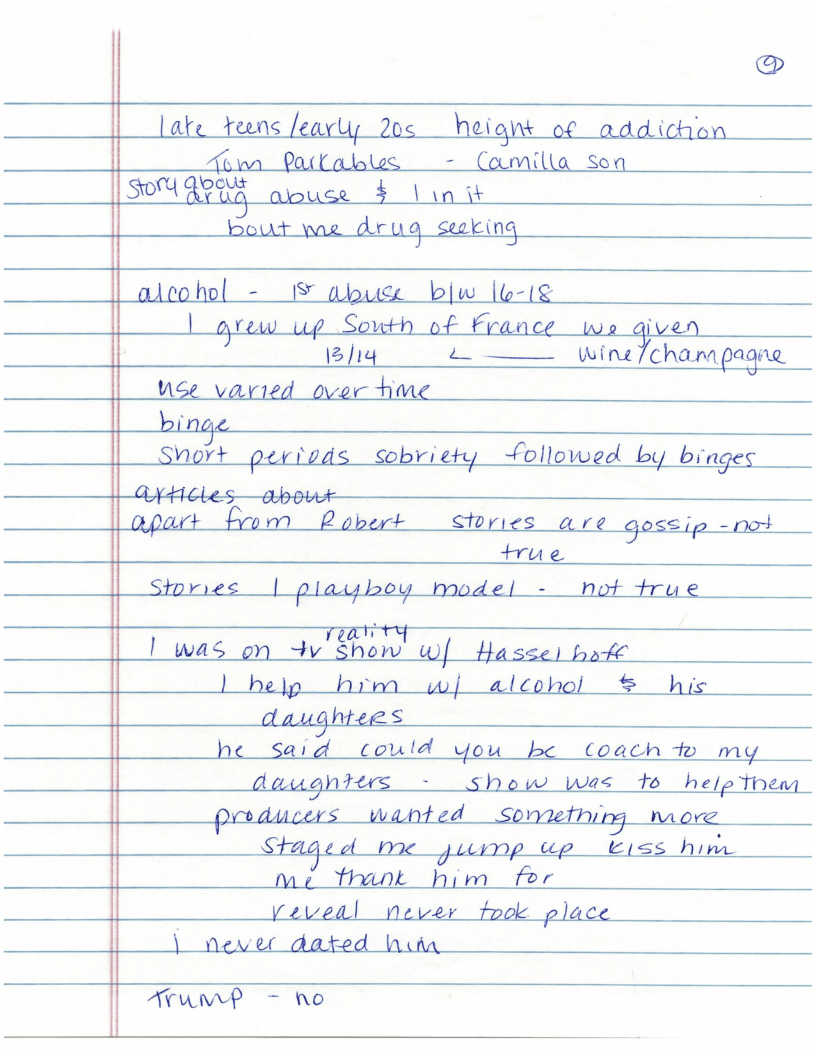 9
late teens/early 20s height of addiction
Tom Parkables - Camilla son
story about
drug abuse & I in it
bout me drug seeking
alcohol - 1st abuse b/w 16-18
I grew up South of France we given
13/14 ← wine/champagne
use varied over time
binge
short periods sobriety followed by binges
articles about
apart from Robert stories are gossip - not
true
stories I playboy model - not true
reality
I was on tv show w/ Hasselhoff
I help him w/ alcohol & his
daughters
he said could you be coach to my
daughters - show was to help them
producers wanted something more
staged me jump up kiss him
me thank him for
reveal never took place
i never dated him
Trump - no